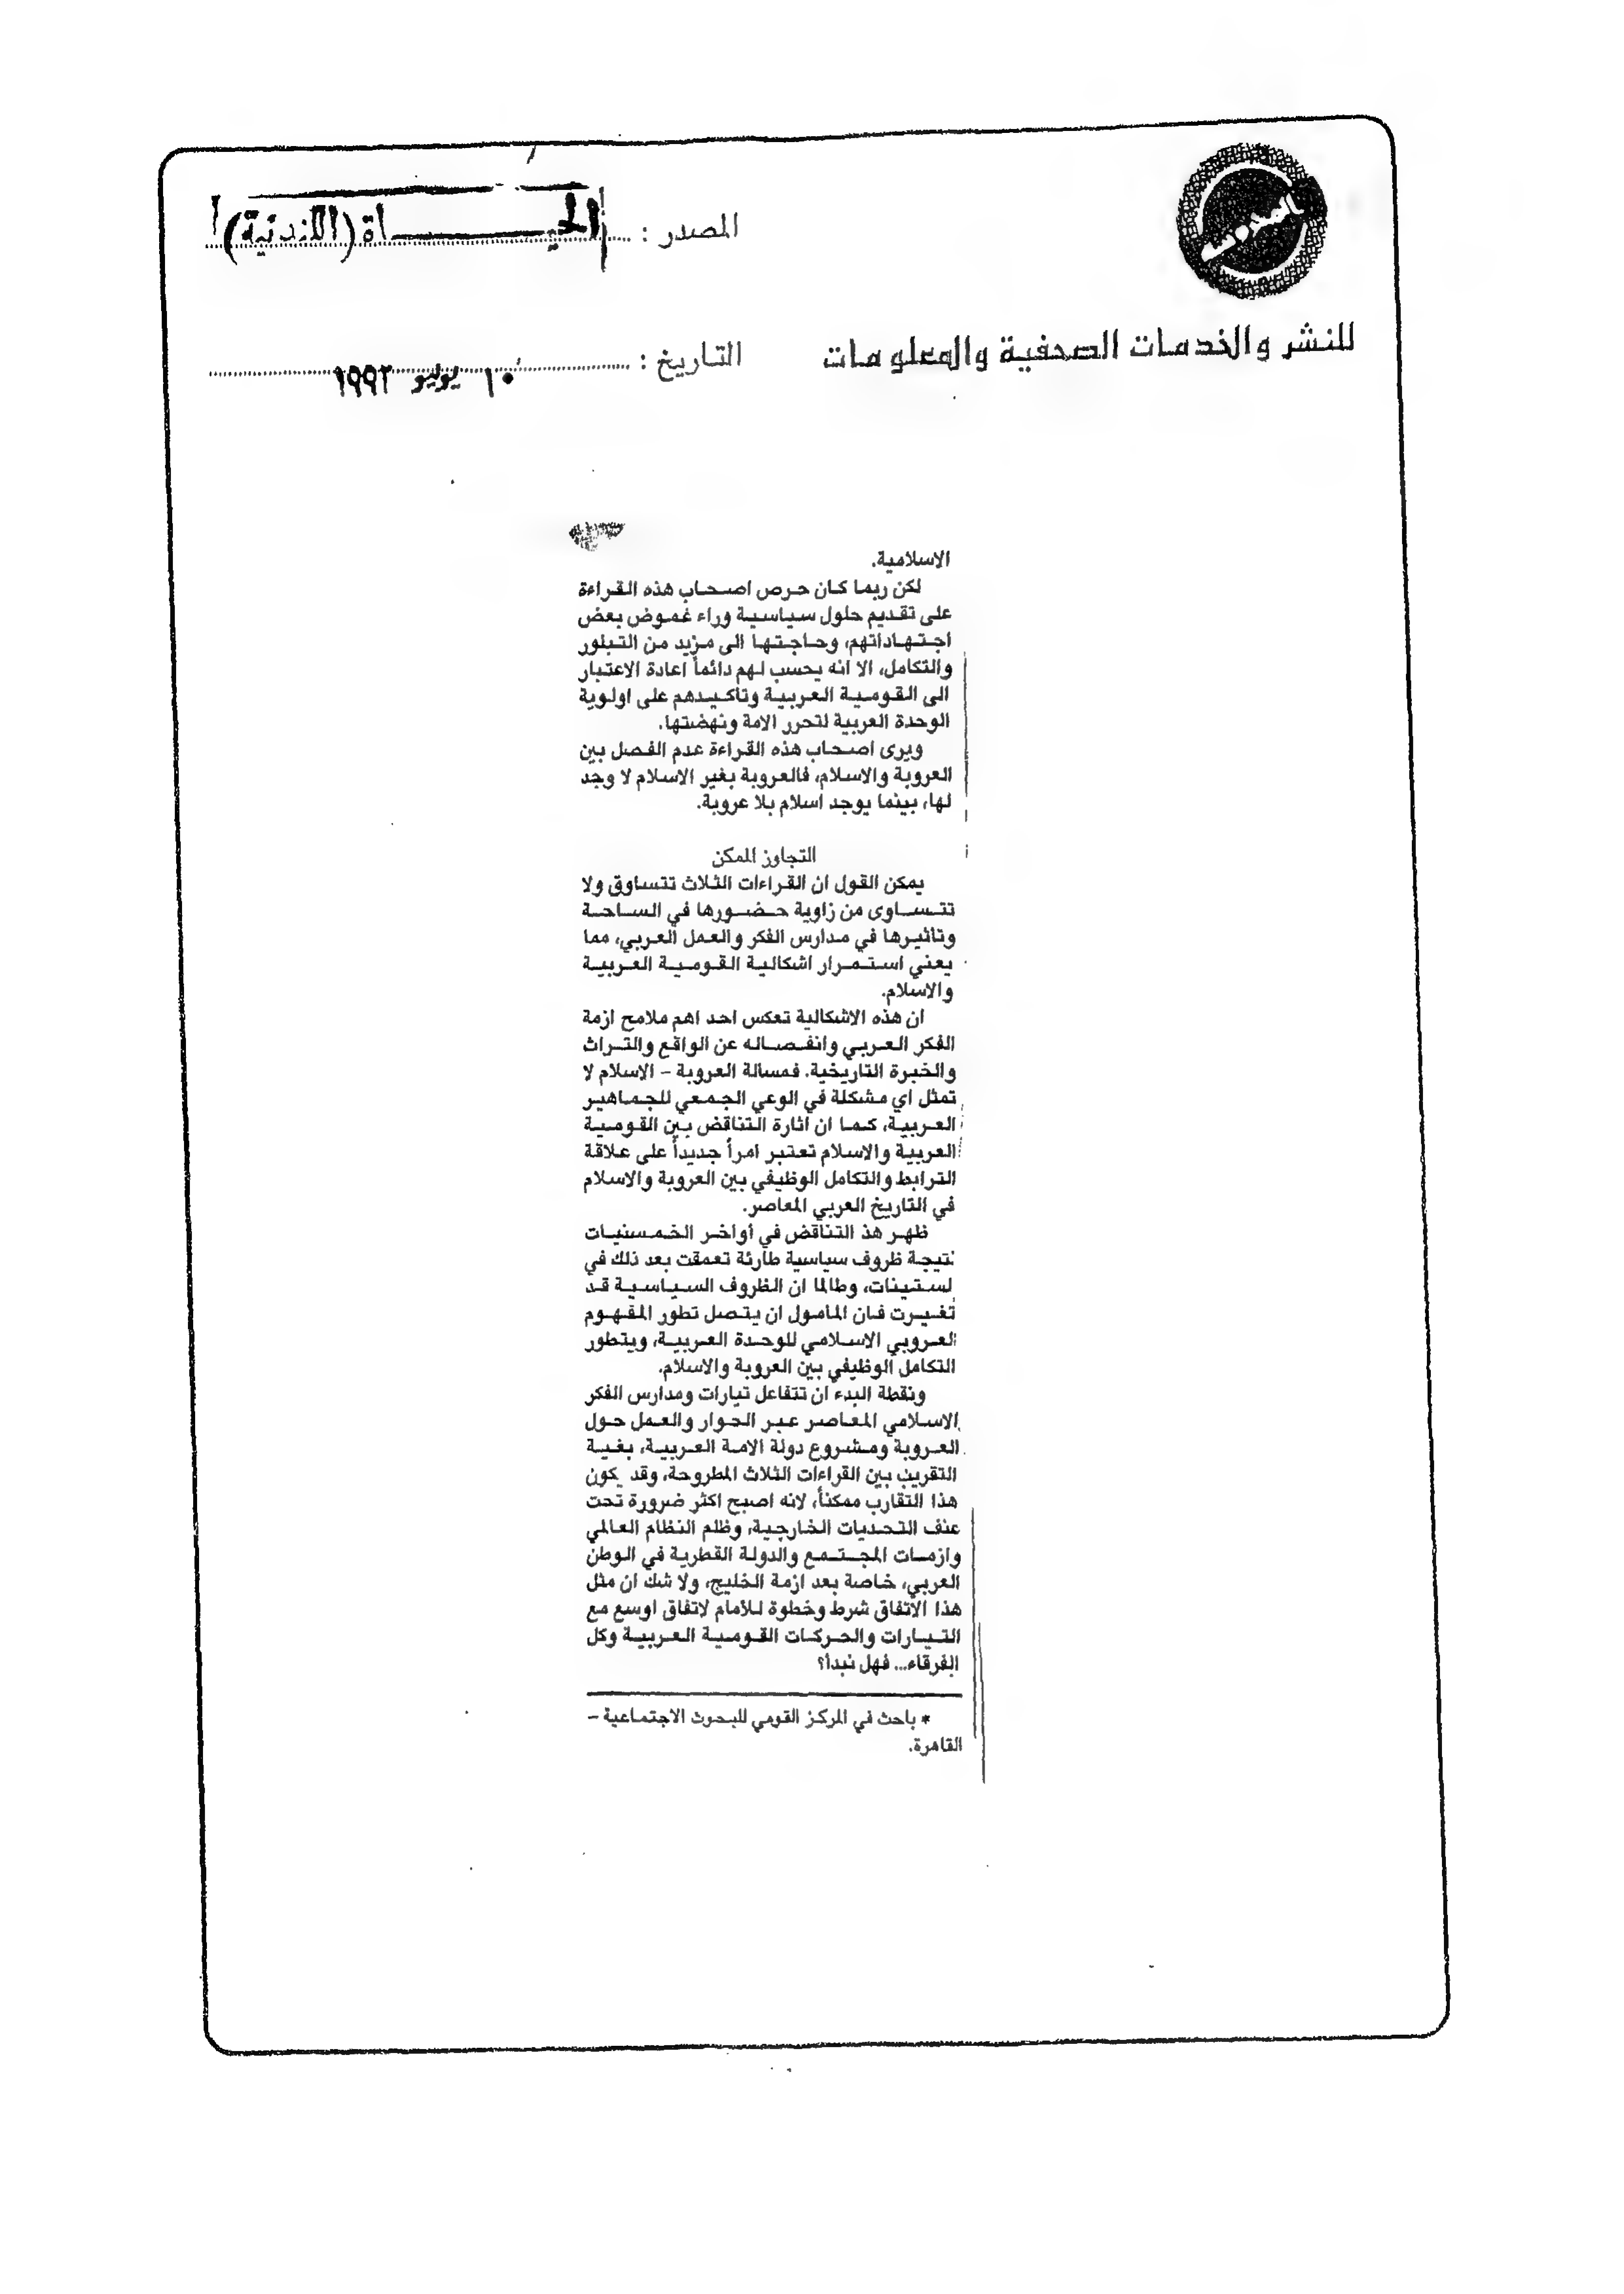 المصدر : الحيـــــاة (اللندنية)
للنشر والخدمات الصحفية والمعلومات
التاريخ : ١٠ يوليو ١٩٩٢
الاسلامية.
لكن ربما كان حرص اصحاب هذه القراءة
على تقديم حلول سياسية وراء غموض بعض
اجتهاداتهم، وحاجتها الى مزيد من التبلور
والتكامل، الا انه يحسب لهم دائماً اعادة الاعتبار
الى القومية العربية وتأكيدهم على اولوية
الوحدة العربية لتحرر الامة ونهضتها.
ويرى اصحاب هذه القراءة عدم الفصل بين
العروبة والاسلام، فالعروبة بغير الاسلام لا وجد
لها، بينما يوجد اسلام بلا عروبة.
التجاوز الممكن
يمكن القول ان القراءات الثلاث تتساوق ولا
تتساوى من زاوية حضورها في الساحة
وتأثيرها في مدارس الفكر والعمل العربي، مما
يعني استمرار اشكالية القومية العربية
والاسلام.
ان هذه الاشكالية تعكس احد اهم ملامح ازمة
الفكر العربي وانفصاله عن الواقع والتراث
والخبرة التاريخية. فمسألة العروبة - الاسلام لا
تمثل اي مشكلة في الوعي الجمعي للجماهير
العربية، كما ان اثارة التناقض بين القومية
العربية والاسلام تعتبر امراً جديداً على علاقة
الترابط والتكامل الوظيفي بين العروبة والاسلام
في التاريخ العربي المعاصر.
ظهر هذ التناقض في أواخر الخمسنيات
نتيجة ظروف سياسية طارئة تعمقت بعد ذلك في
لستينات، وطالما ان الظروف السياسية قد
تغيرت فان المأمول ان يتصل تطور المفهوم
العروبي الاسلامي للوحدة العربية، ويتطور
التكامل الوظيفي بين العروبة والاسلام.
ونقطة البدء ان تتفاعل تيارات ومدارس الفكر
الاسلامي المعاصر عبر الحوار والعمل حول
العروبة ومشروع دولة الامة العربية، بغية
التقريب بين القراءات الثلاث المطروحة، وقد يكون
هذا التقارب ممكناً، لانه اصبح اكثر ضرورة تحت
عنف التحديات الخارجية، وظلم النظام العالمي
وازمات المجتمع والدولة القطرية في الوطن
العربي، خاصة بعد ازمة الخليج، ولا شك ان مثل
هذا الاتفاق شرط وخطوة للأمام لاتفاق اوسع مع
التيارات والحركات القومية العربية وكل
الفرقاء... فهل نبدأ؟
* باحث في المركز القومي للبحوث الاجتماعية -
القاهرة.